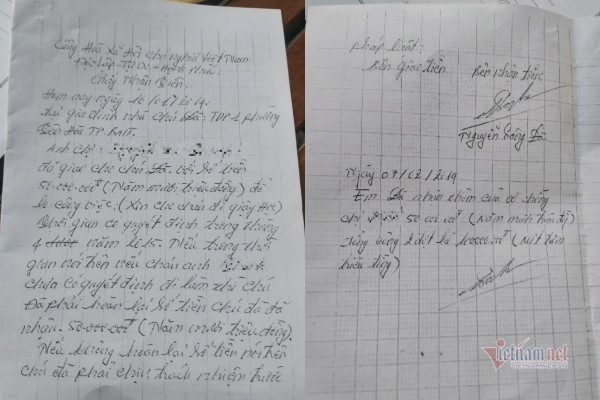 Cộng Hoà Xã Hội chủ nghĩa Việt Nam
Độc Lập - Tự Do - Hạnh Phúc
Giấy Nhận Tiền:
Hôm nay ngày 10/01/2019.
Tại gia đình nhà chú Đă: TDP-1 phường
TP. BMT.
Anh chị:
đã giao cho chú Đă với số tiền
50.000.000đ (Năm mươi triệu đồng) để
lo công việc. (Xin cho cháu đi dạy Học)
thời gian có quyết định trong tháng
4 năm 2015. Nếu trong thời
gian nói trên nếu cháu anh
chưa có quyết định đi làm thì chú
Đă phải hoàn lại số tiền chú đã
nhận. 50.000.000đ (Năm mươi triệu đồng).
Nếu không hoàn lại số tiền nói trên
chú đă phải chịu trách nhiệm trước
pháp luật:
Bên giao tiền Bên nhận tiền
Nguyễn
Ngày 09/02/2019
Em Đă nhận thêm của vợ chồng
chị 50.000.000đ (Năm mươi triệu đ)
Tổng cộng 2 đợt là 100.000.000đ (Một trăm
triệu đồng)
Vietnamnet
VIETNAMNET.VN